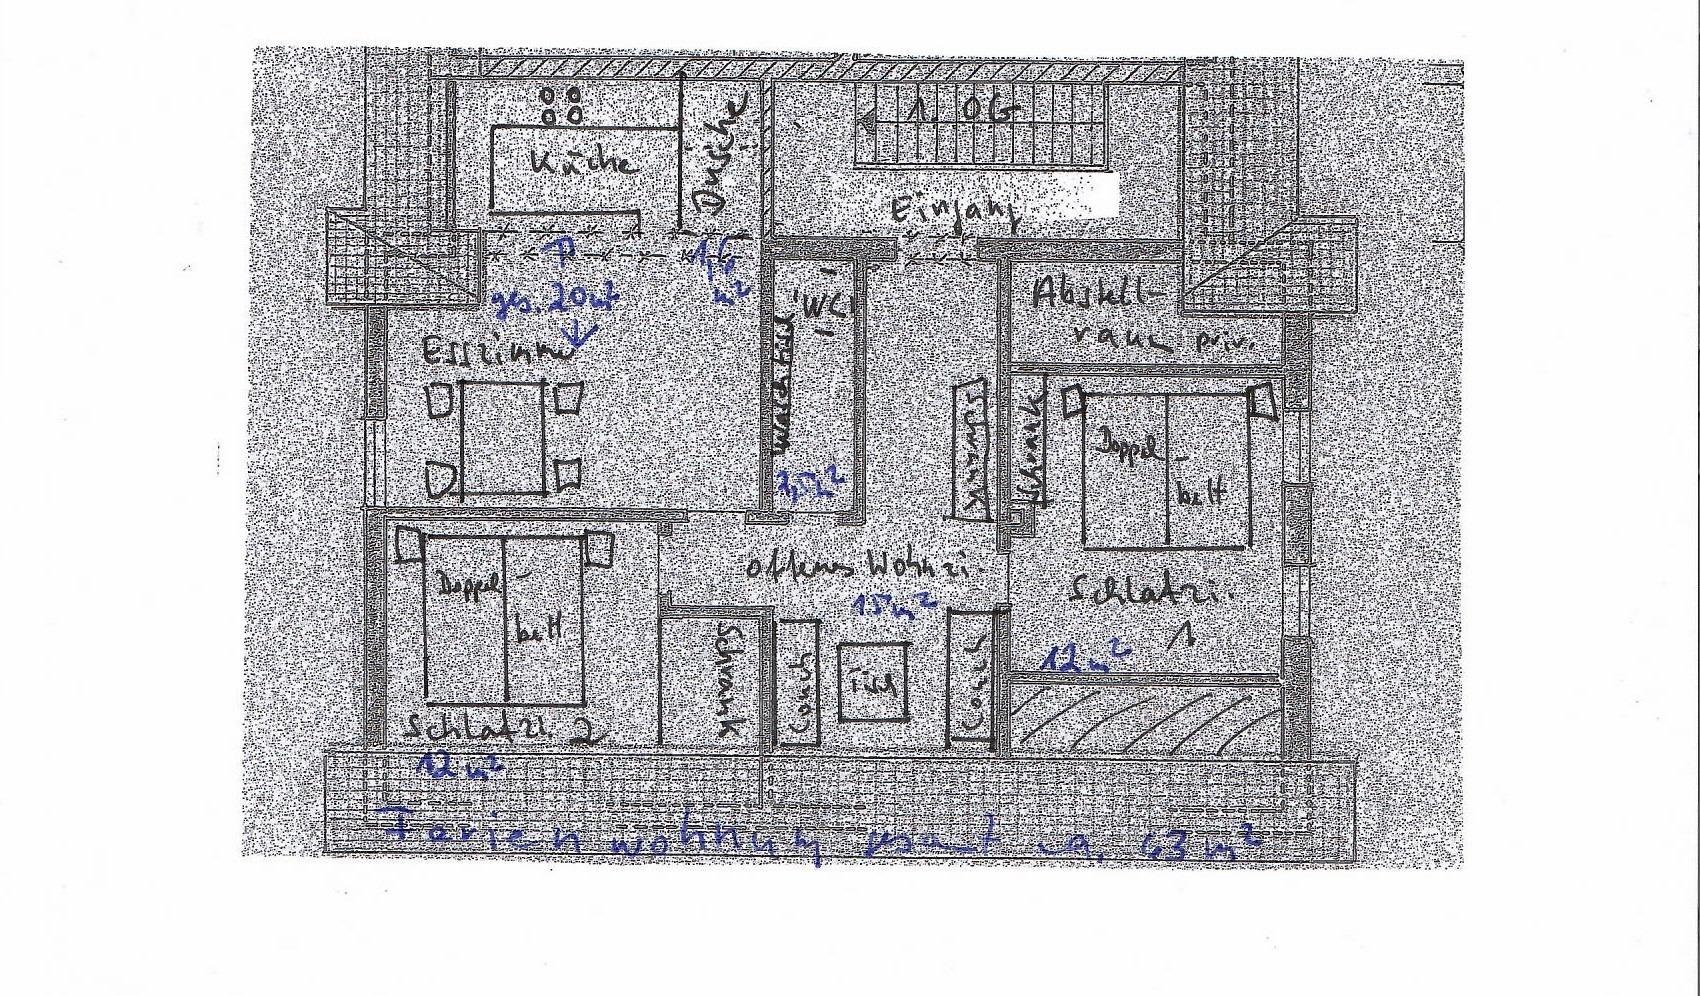 1. OG
Küche
Dusche
Eingang
ges. 20 m²
1,6
m²
WC
Waschtisch
Abstell-
raum priv.
Esszimmer
Schrank
Schrank
Doppel-
bett
m²
offenes Wohnzi.
15 m²
Schlafzi.
1
12 m²
Doppel-
bett
Schrank
Couch
Tisch
Couch
Schlafzi. 2
12 m²
Ferienwohnung gesamt ca. 63 m²